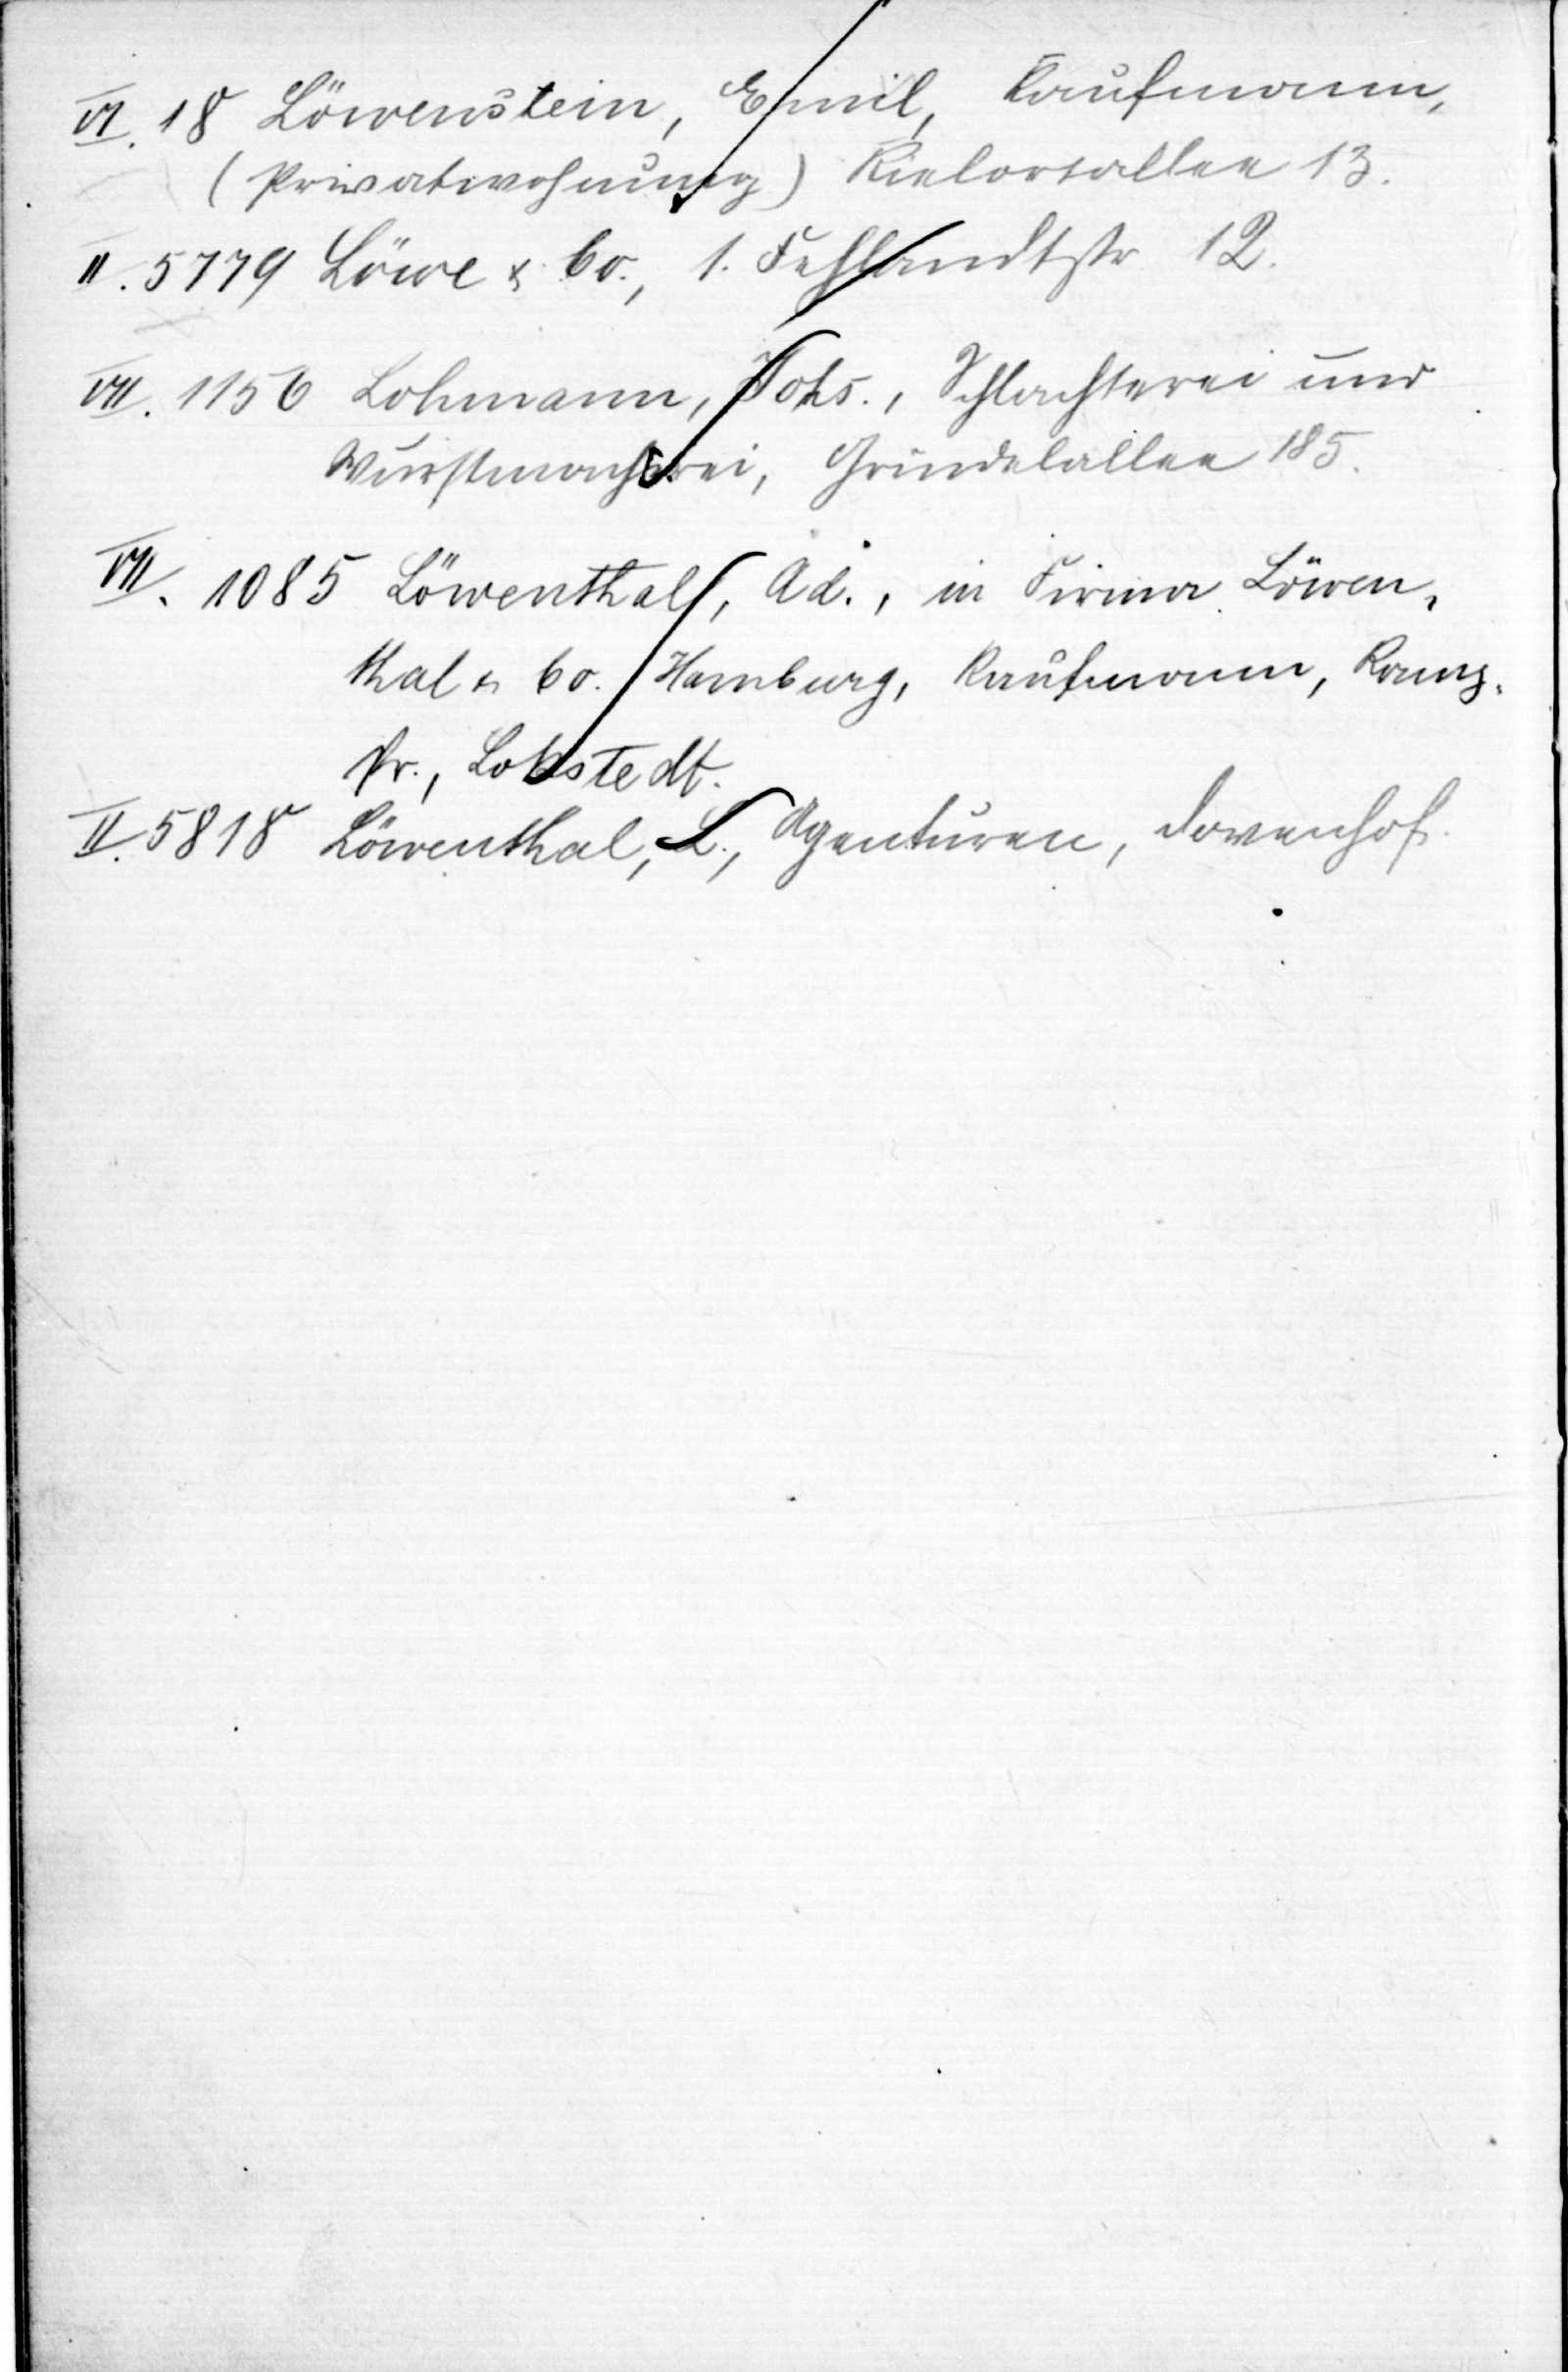 VI. 18 Löwenstein, Emil, Kaufmann,
(Privatwohnung) Kielortallee 13.
II. 5779 Löwe & Co., 1. Fehlandtstr 12.
VII. 1156 Lohmann, Johs., Schlachterei und
Wurstmacherei, Grindelallee 185.
VII. 1085 Löwenthal, Ad., in Firma Löwen-
thal & Co. Hamburg, Kaufmann,
Pr., Lokstedt.
II. 5818 Löwenthal, L., Agenturen, Dovenhof.